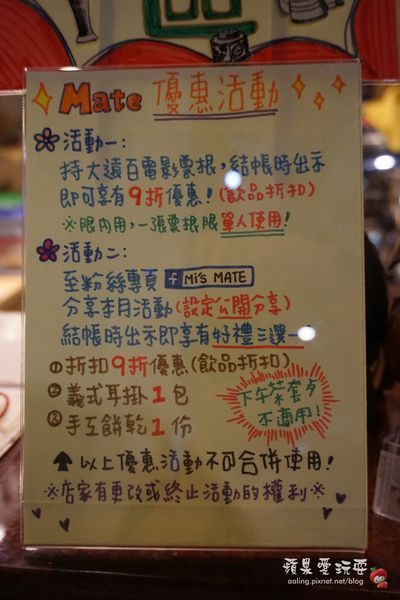 Mate 優惠活動
活動一:
持大遠百電影票根,結帳時出示
即可享有9折優惠!(飲品折扣)
※限內用,一張票根限單人使用!
活動二:
至粉絲專頁 f Mi's MATE
分享本月活動(設定公開分享)
結帳時出示即享有好禮三選一
①折扣9折優惠(飲品折扣)
②義式耳掛1包
③手工餅乾1份
下午茶套餐
不適用!
↑以上優惠活動不可合併使用!
※店家有更改或終止活動的權利※
蘋果愛玩耍
aaling.pixnet.net/blog